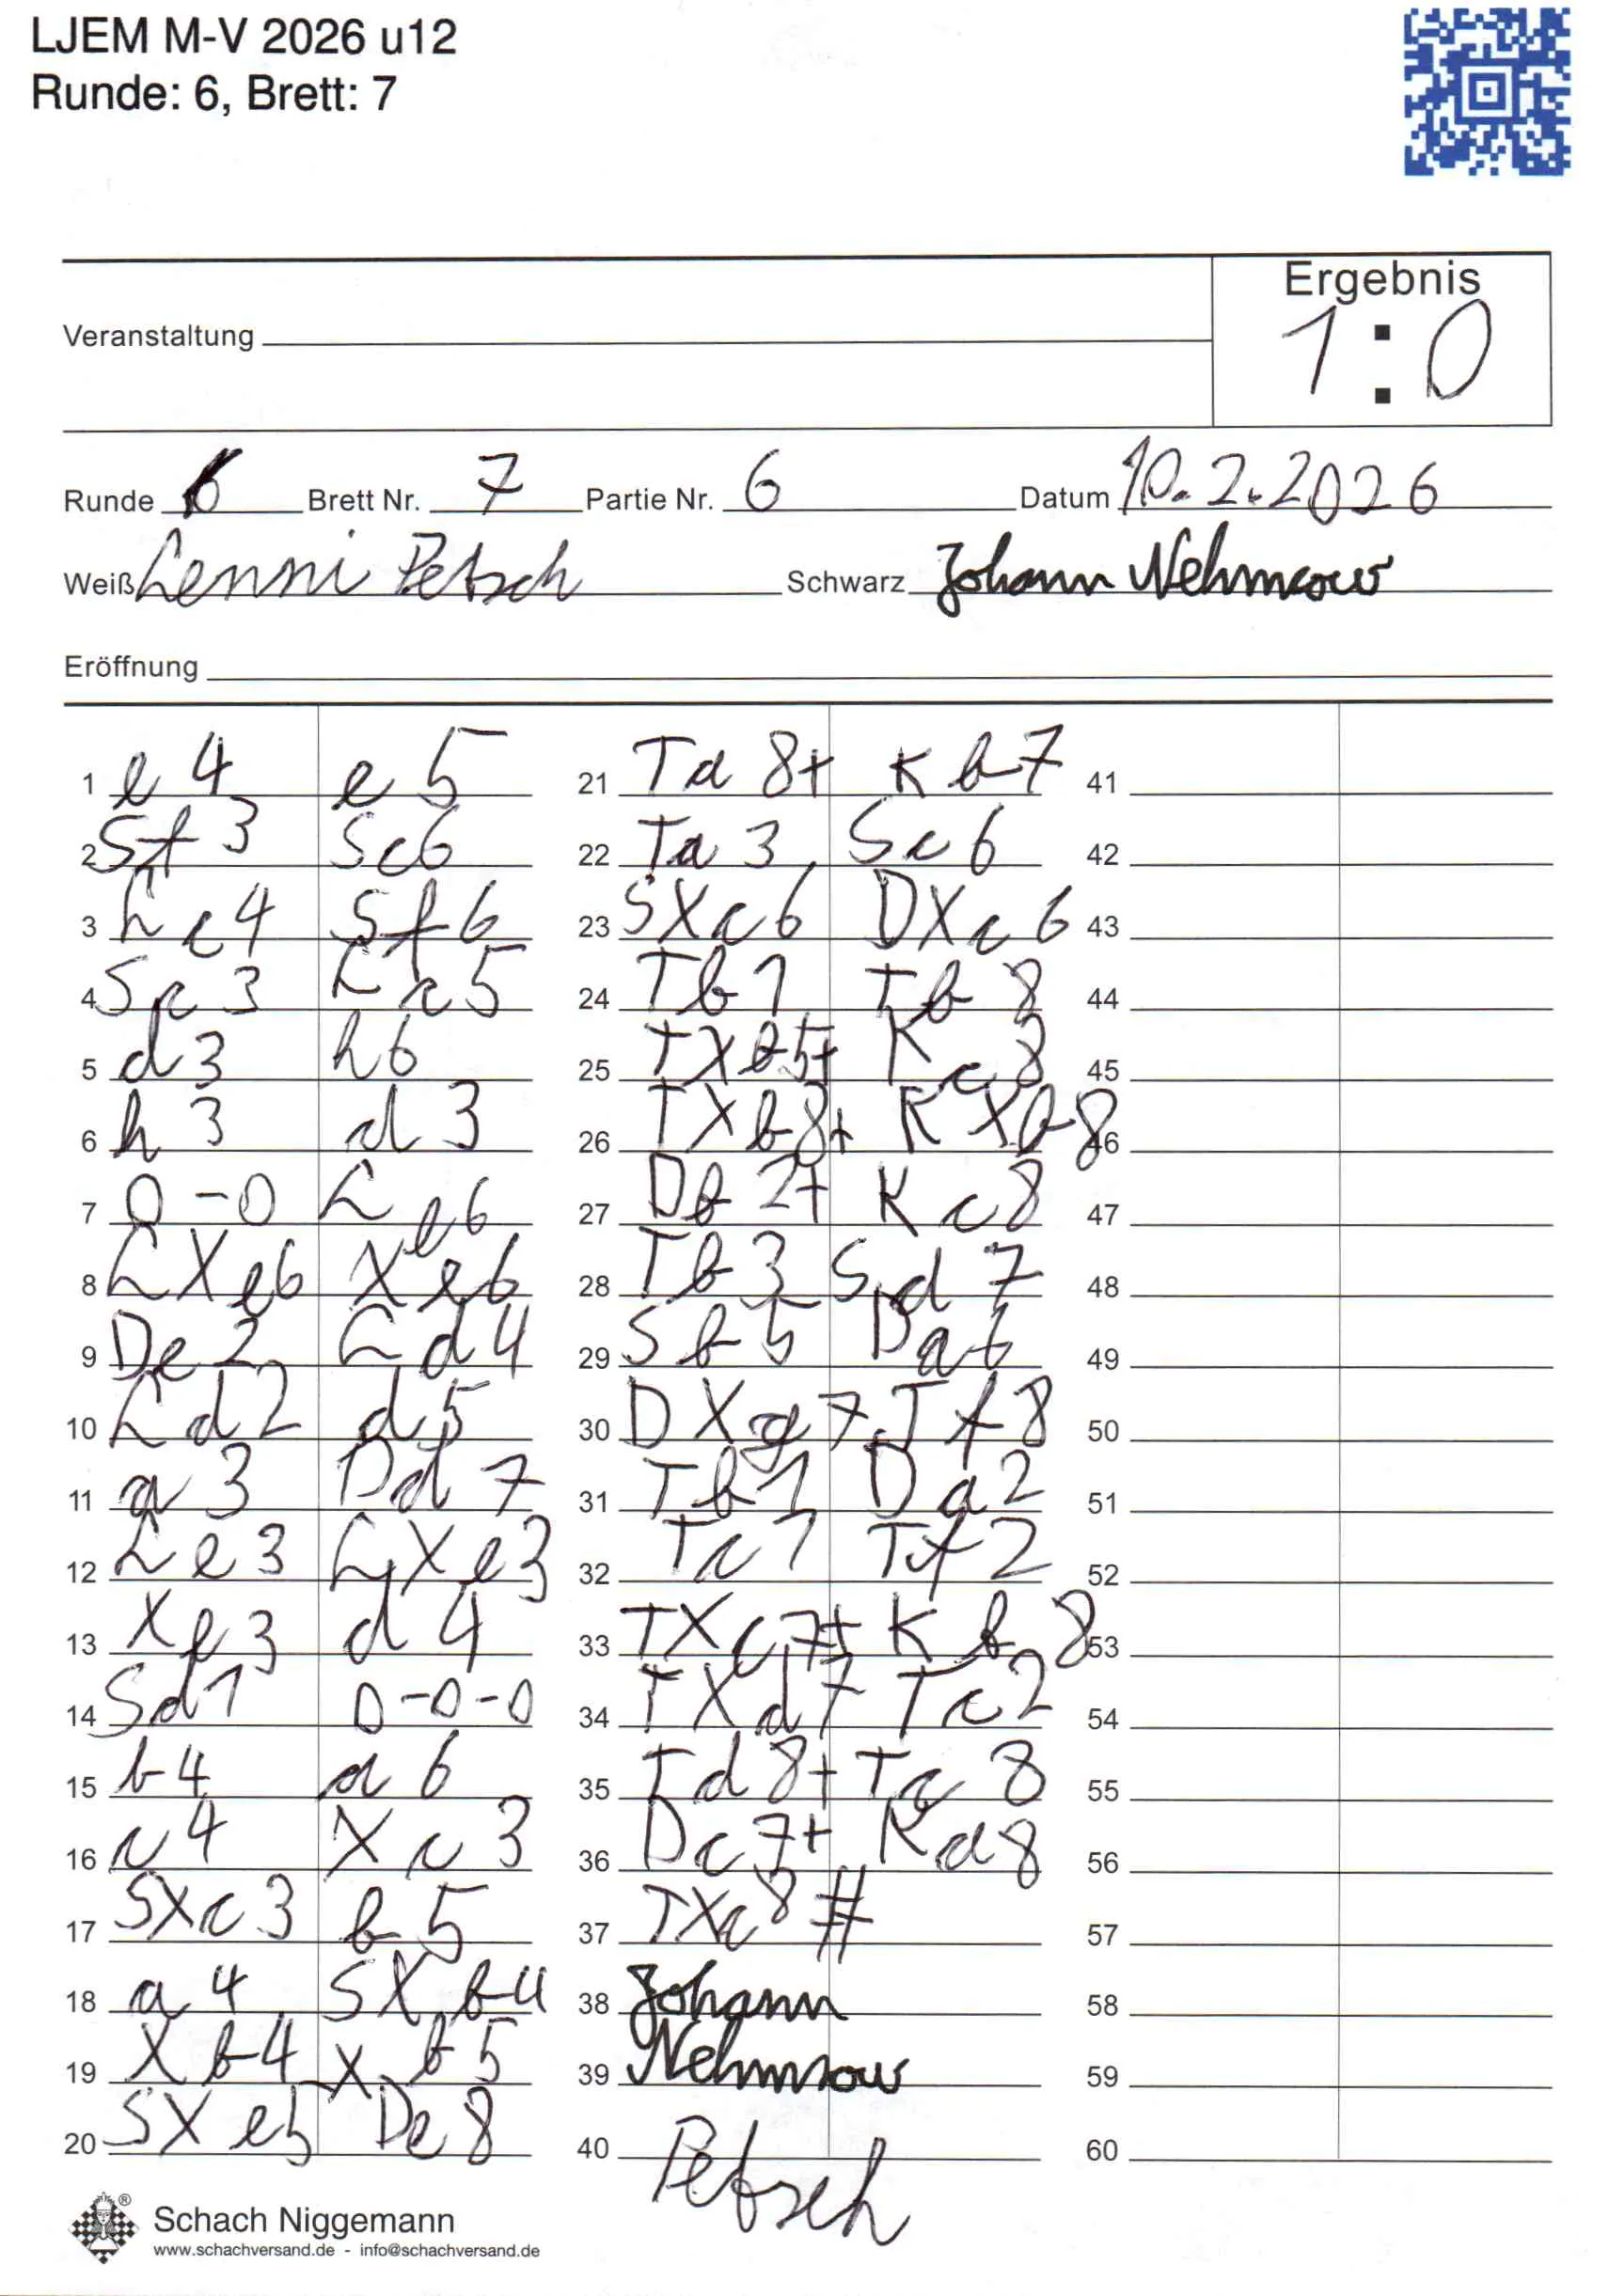 LJEM M-V 2026 u12
Runde: 6, Brett: 7
Ergebnis
1:0
Veranstaltung
Runde 6 Brett Nr. 7 Partie Nr. 6 Datum 10.2.2026
Weiß Lenni Petsch Schwarz Johann Nehmzow
Eröffnung
1 e4 e5 21 Ta8+ Kb7 41
2 Sf3 Sc6 22 Ta3 Sc6 42
3 Lc4 Sf6 23 SXc6 DXc6 43
4 Sc3 Lc5 24 Tb1 Tb8 44
5 d3 h6 25 TXb5+ Kc8 45
6 h3 d3 26 TXb8+ KXb8 46
7 0-0 Le6 27 Db2+ Kc8 47
8 LXe6 Xe6 28 Tb3 Sd7 48
9 De2 Ld4 29 Sb5 Da6 49
10 Ld2 d5 30 DXg7 Tf8 50
11 a3 Dd7 31 Tb1 Da2 51
12 Le3 LXe3 32 Tc1 Tf2 52
13 Xe3 d4 33 TXc7+ Kb8 53
14 Sd1 0-0-0 34 TXd7 Tc2 54
15 b4 a6 35 Td8+ Tc8 55
16 c4 Xc3 36 Dc7+ Ka8 56
17 SXc3 b5 37 TXc8# 57
18 a4 SXb4 38 Johann 58
19 Xb4 Xb5 39 Nehmzow 59
20 SXe5 De8 40 Petsch 60
Schach Niggemann
www.schachversand.de - info@schachversand.de